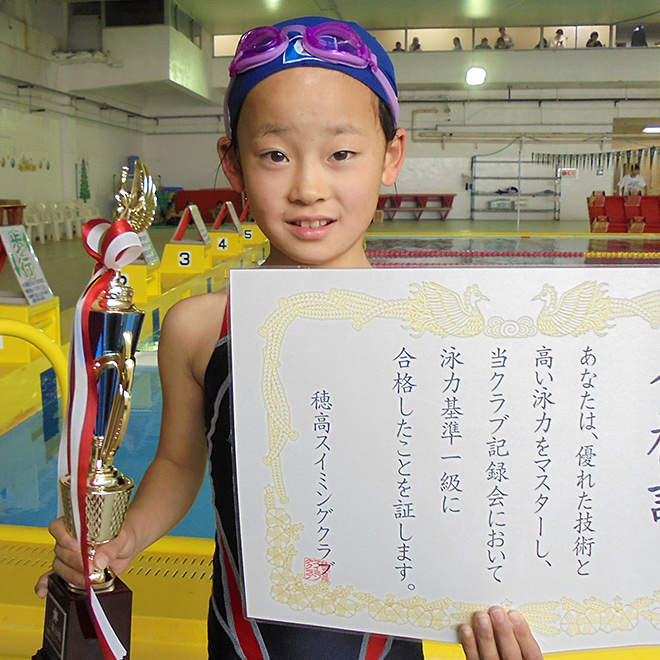 あなたは、優れた技術と
高い泳力をマスターし、
当クラブ記録会において
泳力基準一級に
合格したことを証します。
穂高スイミングクラブ
3
4
5